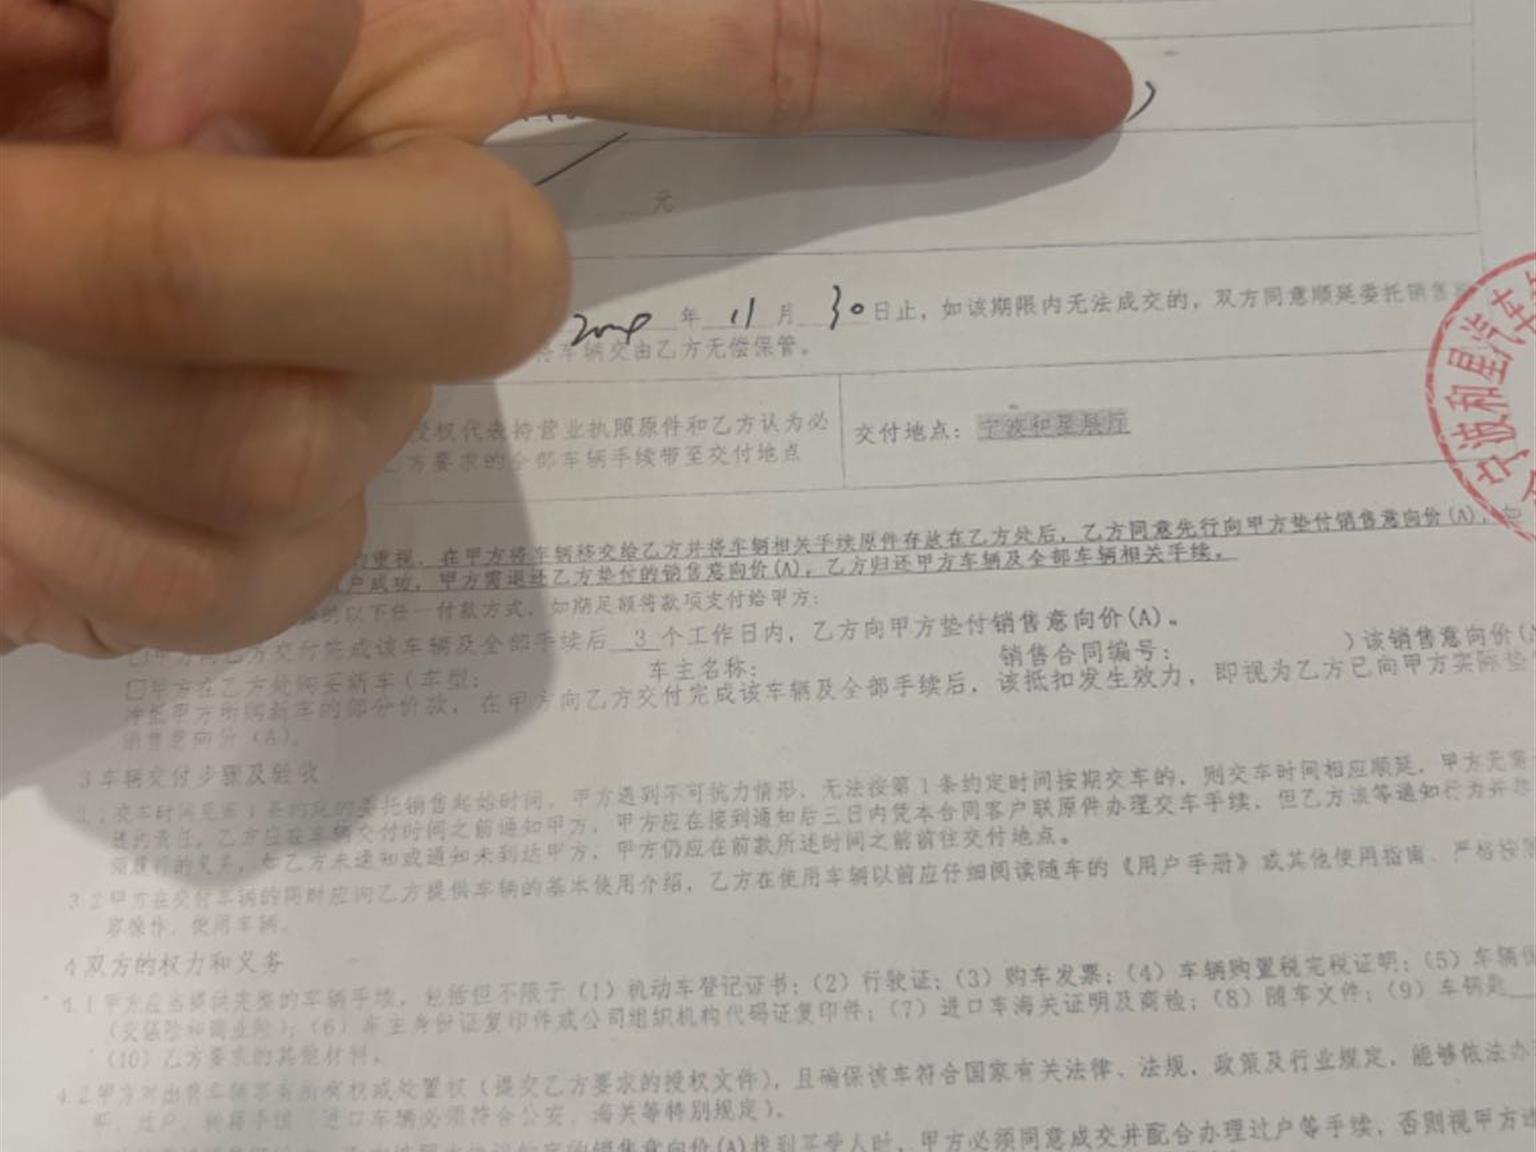 元
年 11 月 30 日止，如该期限内无法成交的，双方同意顺延委托销售
车辆交由乙方无偿保管。
授权代表持营业执照原件和乙方认为必
方要求的全部车辆手续带至交付地点
交付地点：宁波和星展厅
宁波和星汽车
的重视，在甲方将车辆移交给乙方并将车辆相关手续原件存放在乙方处后，乙方同意先行向甲方垫付销售意向价(A)，
户成功，甲方需退还乙方垫付的销售意向价(A)，乙方归还甲方车辆及全部车辆相关手续。
的以下任一付款方式，如期足额将款项支付给甲方：
□甲方向乙方交付完成该车辆及全部手续后 3 个工作日内，乙方向甲方垫付销售意向价(A)。
□甲方在乙方处购买新车（车型： 车主名称： 销售合同编号： ）该销售意向价(
冲抵甲方所购新车的部分价款，在甲方向乙方交付完成该车辆及全部手续后，该抵扣发生效力，即视为乙方已向甲方实际垫
销售意向价（A）。
3 车辆交付步骤及验收
交车时间见第 1 条约定的委托销售起始时间，甲方遇到不可抗力情形，无法按第 1 条约定时间按期交车的，则交车时间相应顺延，甲方无需
违约责任。乙方应在车辆交付时间之前通知甲方，甲方应在接到通知后三日内凭本合同客户联原件办理交车手续，但乙方该等通知行为并非
须履行的义务，如乙方未通知或通知未到达甲方，甲方仍应在前款所述时间之前前往交付地点。
3.2 甲方在交付车辆的同时应向乙方提供车辆的基本使用介绍，乙方在使用车辆以前应仔细阅读随车的《用户手册》或其他使用指南，严格按照
容操作、使用车辆。
4 双方的权力和义务
4.1 甲方应当提供完整的车辆手续，包括但不限于（1）机动车登记证书；（2）行驶证；（3）购车发票；（4）车辆购置税完税证明；（5）车辆保
（交强险和商业险）；（6）车主身份证复印件或公司组织机构代码证复印件；（7）进口车海关证明及商检；（8）随车文件；（9）车钥匙
（10）乙方要求的其他材料。
4.2 甲方对出售车辆享有所有权或处置权（提交乙方要求的授权文件），且确保该车符合国家有关法律、法规、政策及行业规定，能够依法办
过户、转籍手续（进口车辆必须符合公安、海关等特别规定）。
销售意向价(A)找到买受人时，甲方必须同意成交并配合办理过户等手续，否则视甲方